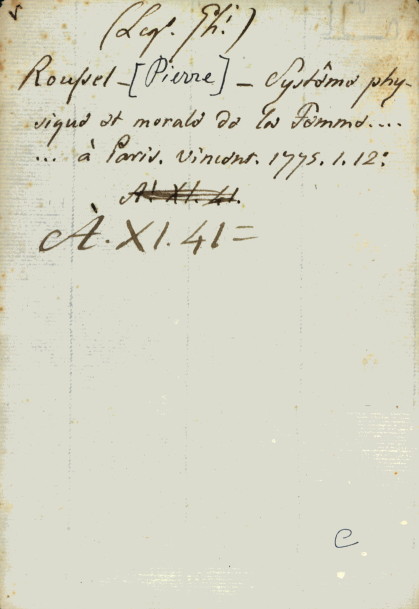 (Leg. Gh.)
Roussel - [Pierre] - Système phy-
sique et morale de la Femme....
... à Paris. Vincent. 1775. 1. 12:
A. XI. 41.
À. XI. 41=
C